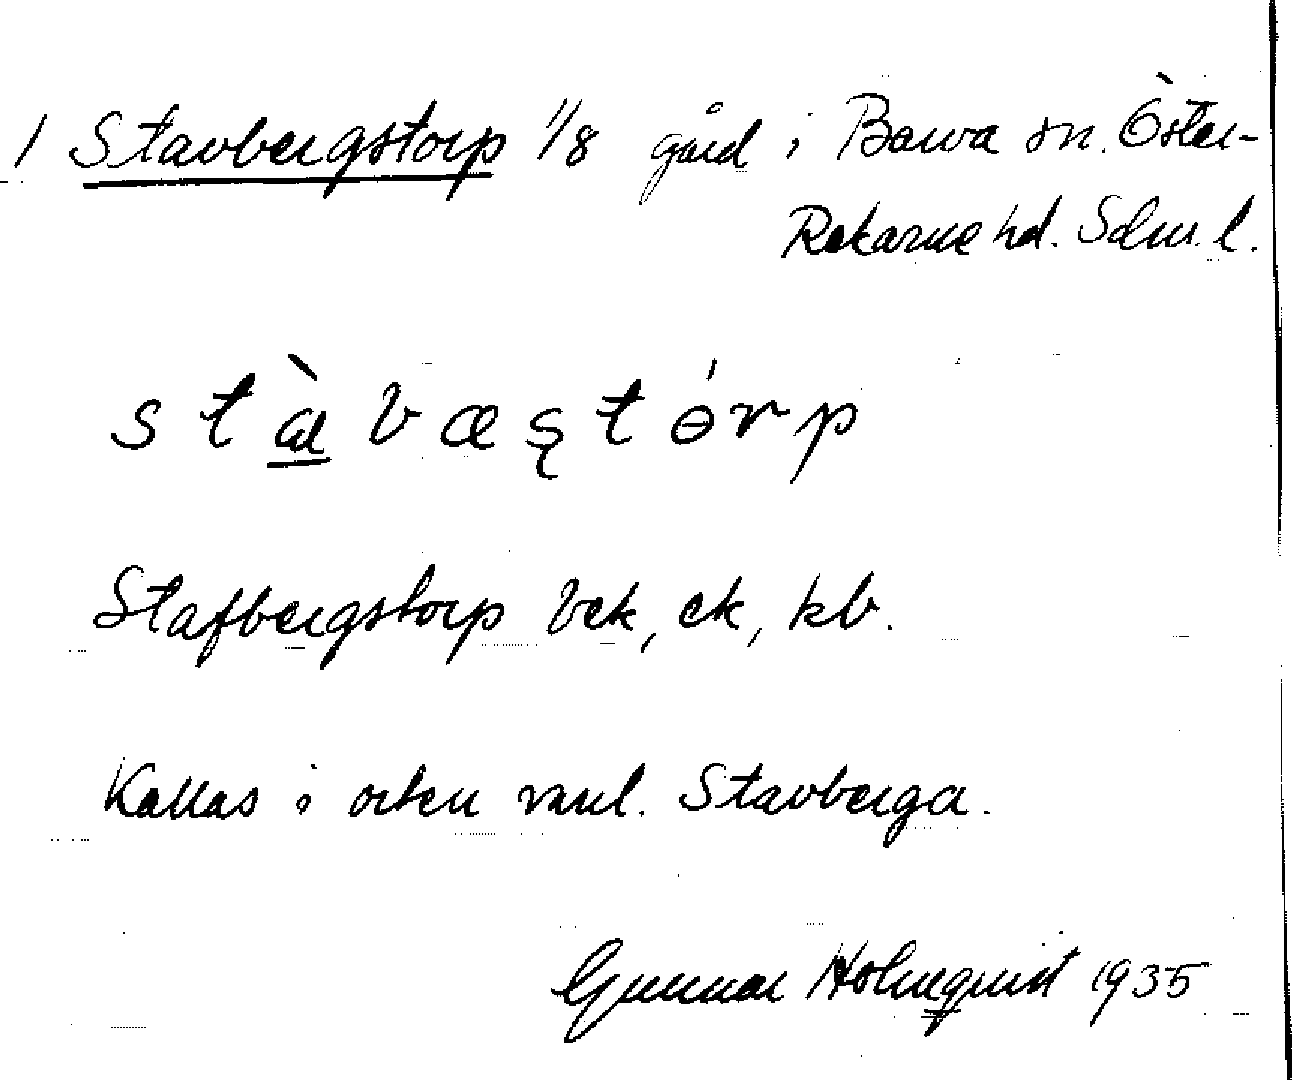 1 Stavbergstorp 1/8 gård i Barva sn. Öster-
Rekarne hd. Sdm. l.
stàbæştórp
Stafbergstorp bek, ek, kb.
Kallas i orten vanl. Stavberga.
Gunnar Holmquist 1935